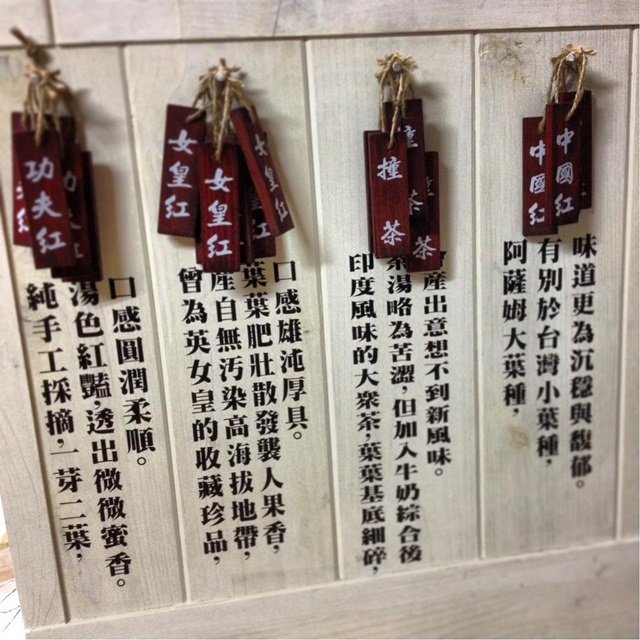 功夫紅
純手工採摘,一芽二葉,
湯色紅豔,透出微微蜜香。
口感圓潤柔順。
女皇紅
女皇紅
女皇紅
曾為英女皇的收藏珍品,
產自無污染高海拔地帶,
葉葉肥壯散發襲人果香,
口感雄沌厚具。
撞茶
撞茶
印度風味的大眾茶,葉葉基底細碎,
湯略為苦澀,但加入牛奶綜合後
產出意想不到新風味。
中國紅
中國紅
阿薩姆大葉種,
有別於台灣小葉種,
味道更為沉穩與馥郁。